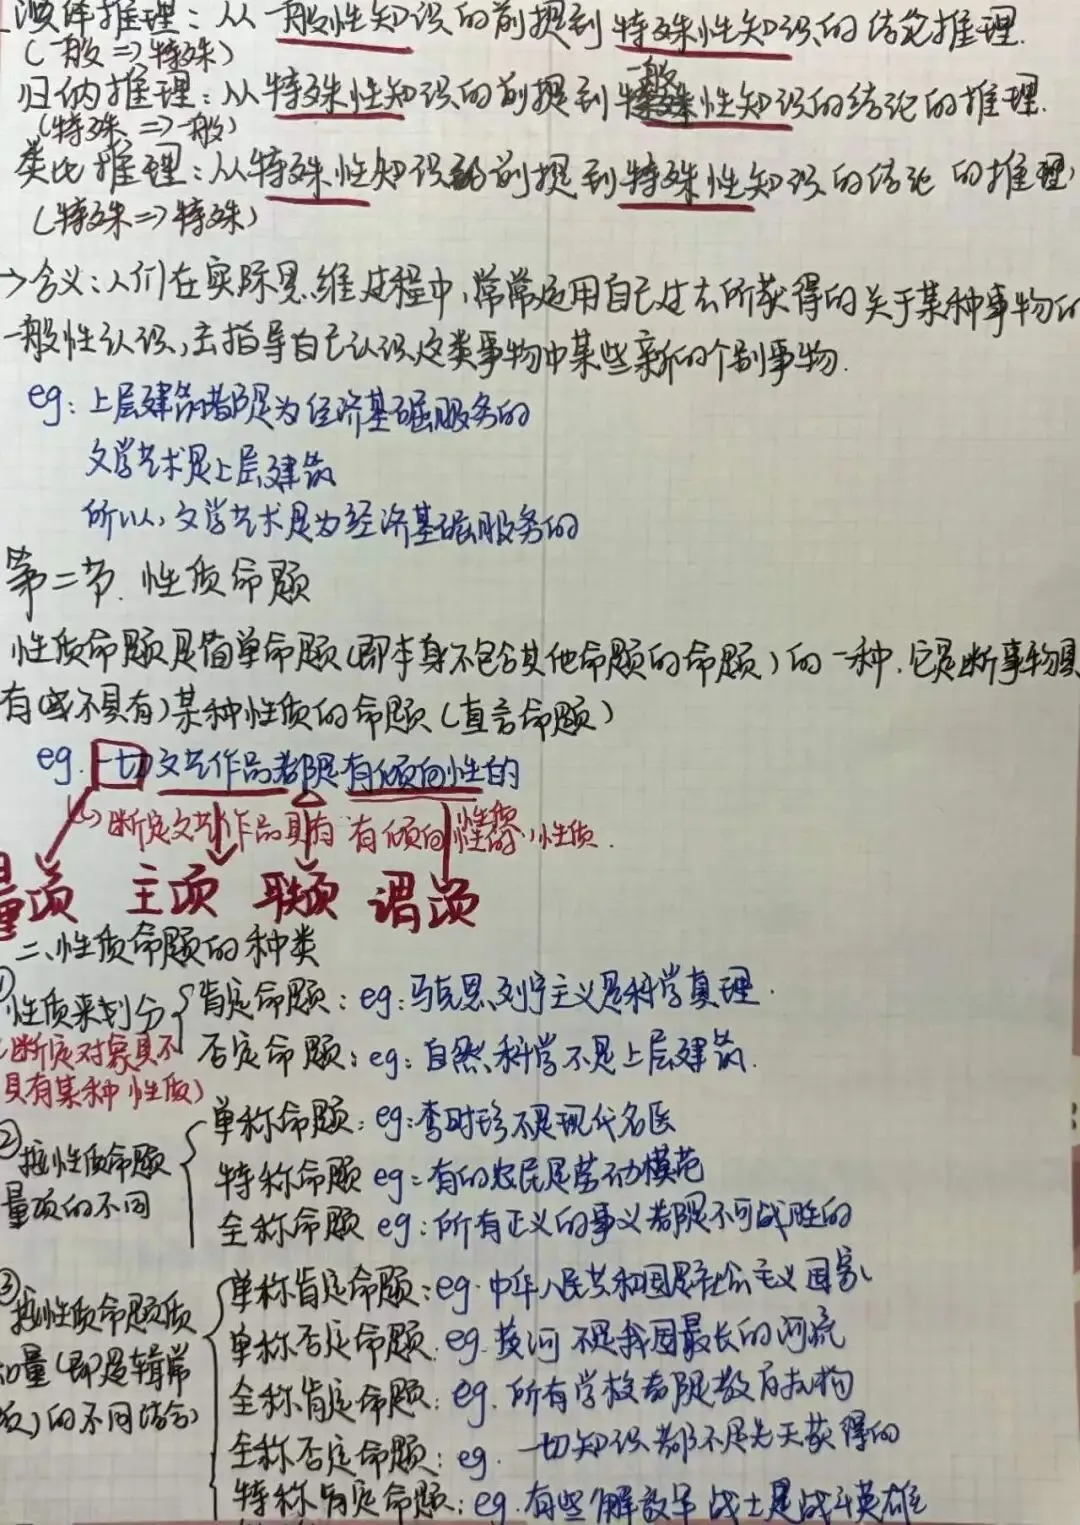 演绎推理：从一般性知识的前提到特殊性知识的结论推理.
(一般⇒特殊)
归纳推理：从特殊性知识的前提到一般性知识的结论的推理.
(特殊⇒一般)
类比推理：从特殊性知识的前提到特殊性知识的结论的推理
(特殊⇒特殊)
→含义：人们在实际思维过程中，常常运用自己过去所获得的关于某种事物的
一般性认识，去指导自己认识这类事物中某些新的个别事物.
eg：上层建筑都是为经济基础服务的
文学艺术是上层建筑
所以，文学艺术是为经济基础服务的
第二节. 性质命题
性质命题是简单命题(即本身不包含其他命题的命题)的一种. 它是断事物具
有(或不具有)某种性质的命题(直言命题)
eg. 一切文艺作品都是有倾向性的
断定文艺作品具有 有倾向性的 性质 , 性质.
量项 主项 联项 谓项
二、性质命题的种类
①性质来划分
肯定命题：eg：马克思列宁主义是科学真理.
否定命题：eg：自然科学不是上层建筑.
(断定对象具不
具有某种性质)
②按性质命题
量项的不同
单称命题：eg：李时珍不是现代名医
特称命题 eg：有的农民是劳动模范
全称命题 eg：所有正义的事义都是不可战胜的
③按性质命题质
和量(即逻辑常
项)的不同结合
单称肯定命题：eg. 中华人民共和国是社会主义国家
单称否定命题. eg. 黄河不是我国最长的河流
全称肯定命题：eg. 所有学校都是教育机构
全称否定命题：eg. 一切知识都不是先天获得的
特称肯定命题：eg. 有些解放军战士是战斗英雄